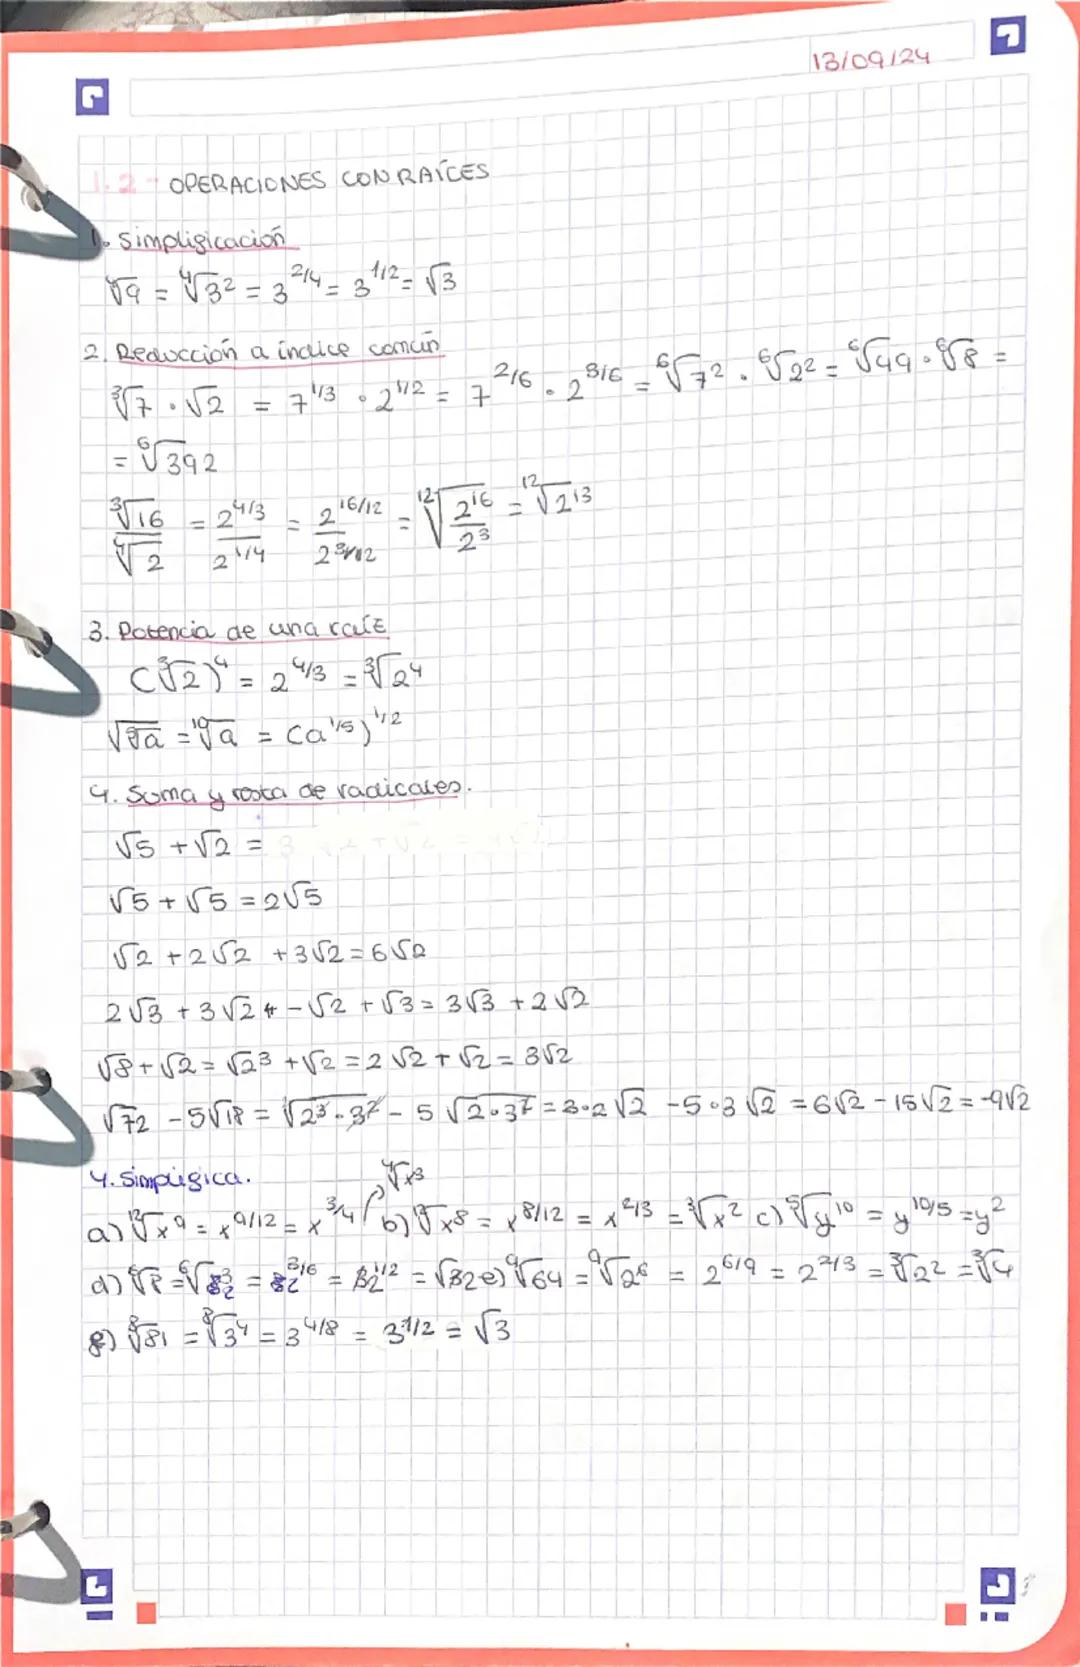 13/09/24
1.2- OPERACIONES CON RAÍCES
1. Simpligicación
⁴√9 = ⁴√3² = 3^2/4 = 3^1/2 = √3
2. Reducción a índice común
³√7 · √2 = 7^1/3 · 2^1/2 = 7^2/6 · 2^3/6 = ⁶√7² · ⁶√2² = ⁶√49 · ⁶√8 =
= ⁶√392
³√16 / ⁴√2 = 2^4/3 / 2^1/4 = 2^16/12 / 2^3/12 = ¹²√(2^16 / 2^3) = ¹²√2^13
3. Potencia de una raíz
(³√2)⁴ = 2^4/3 = ³√2⁴
√⁵√a = ¹⁰√a = (a^1/5)^1/2
4. Suma y resta de radicales.
√5 + √2 =
√5 + √5 = 2√5
√2 + 2√2 + 3√2 = 6√2
2√3 + 3√2 - √2 + √3 = 3√3 + 2√2
√8 + √2 = √2³ + √2 = 2√2 + √2 = 3√2
√72 - 5√18 = √2³·3² - 5√2·3² = 3·2√2 - 5·3√2 = 6√2 - 15√2 = -9√2
4. Simpligica.
a) ¹²√x⁹ = x^9/12 = x^3/4 ⁴√x³ b) ¹²√x⁸ = x^8/12 = x^2/3 = ³√x² c) ⁵√y¹⁰ = y^10/5 = y²
d) ⁶√8 = ⁶√2³ = 2^3/6 = 2^1/2 = √2 e) ⁹√64 = ⁹√2⁶ = 2^6/9 = 2^2/3 = ³√2² = ³√4
g) ⁸√81 = ⁸√3⁴ = 3^4/8 = 3^1/2 = √3